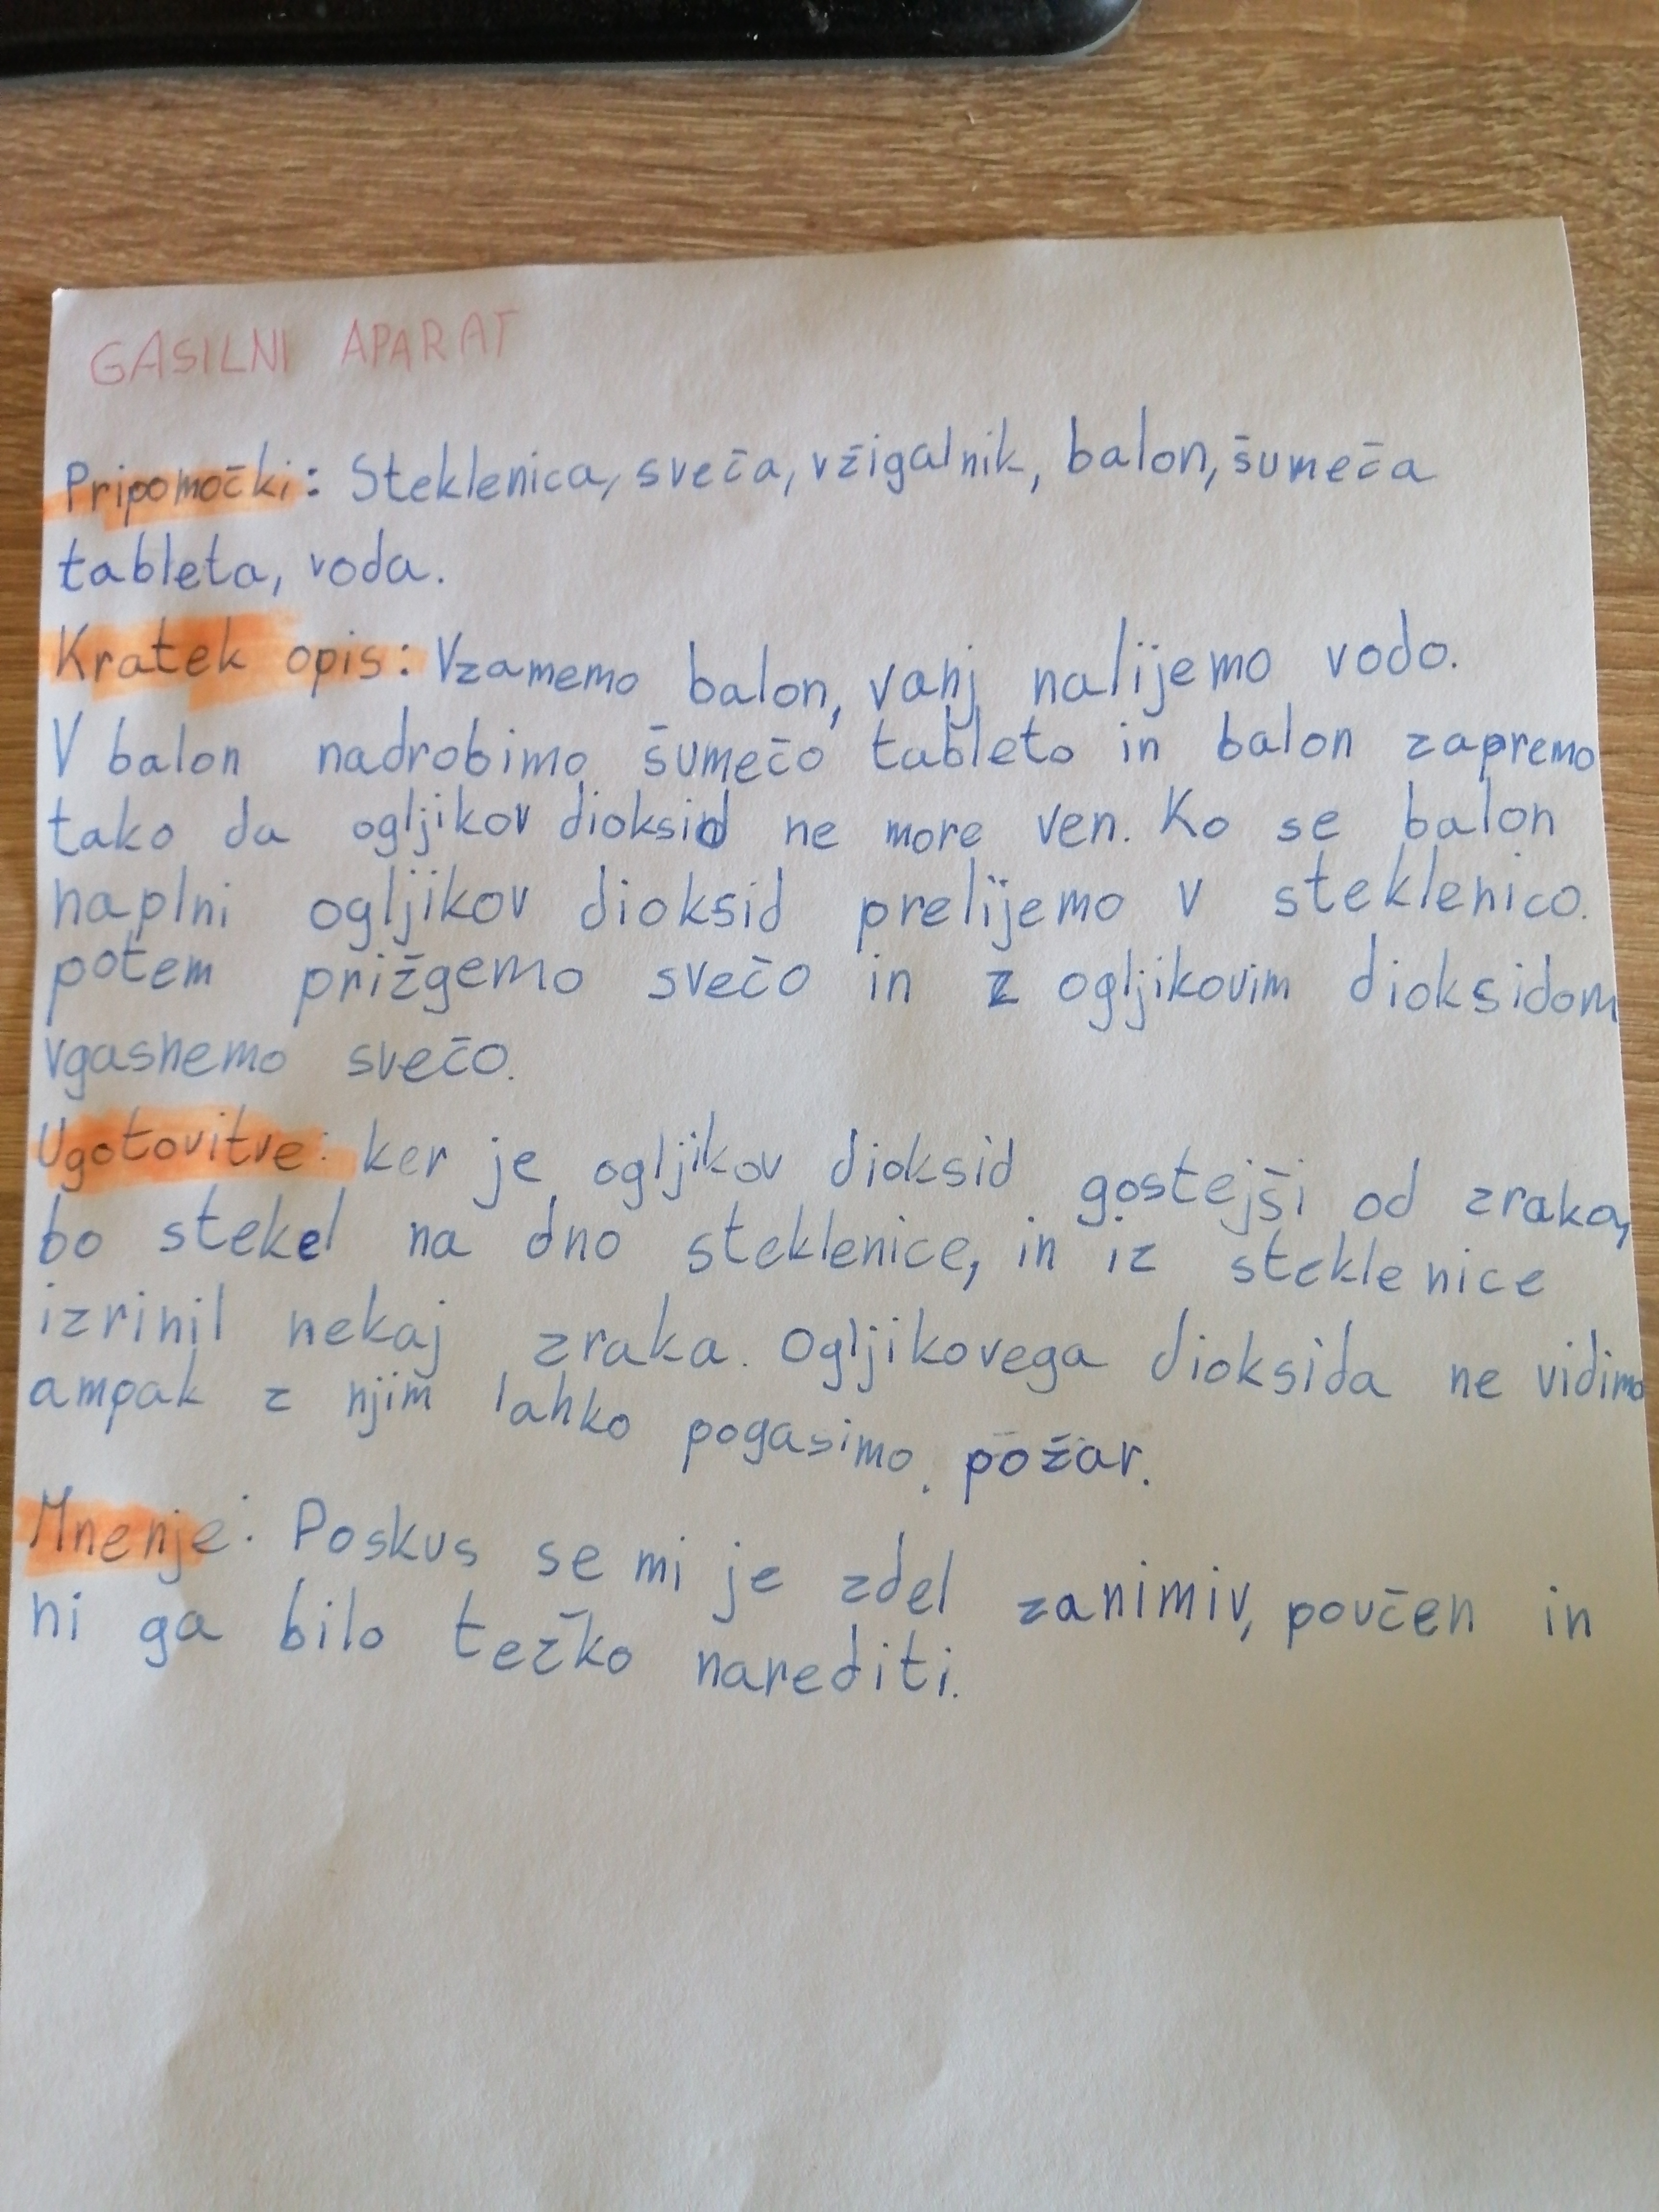 GASILNI APARAT
Pripomočki: Steklenica, sveča, vžigalnik, balon, šumeča
tableta, voda.
Kratek opis: Vzamemo balon, vanj nalijemo vodo.
V balon nadrobimo šumečo tableto in balon zapremo
tako da ogljikov dioksid ne more ven. Ko se balon
naplni ogljikov dioksid prelijemo v steklenico.
potem prižgemo svečo in z ogljikovim dioksidom
vgasnemo svečo.
Ugotovitve: ker je ogljikov dioksid gostejši od zraka,
bo stekel na dno steklenice, in iz steklenice
izrinil nekaj zraka. Ogljikovega dioksida ne vidimo
ampak z njim lahko pogasimo. požar.
Mnenje: Poskus se mi je zdel zanimiv, povčen in
ni ga bilo težko narediti.